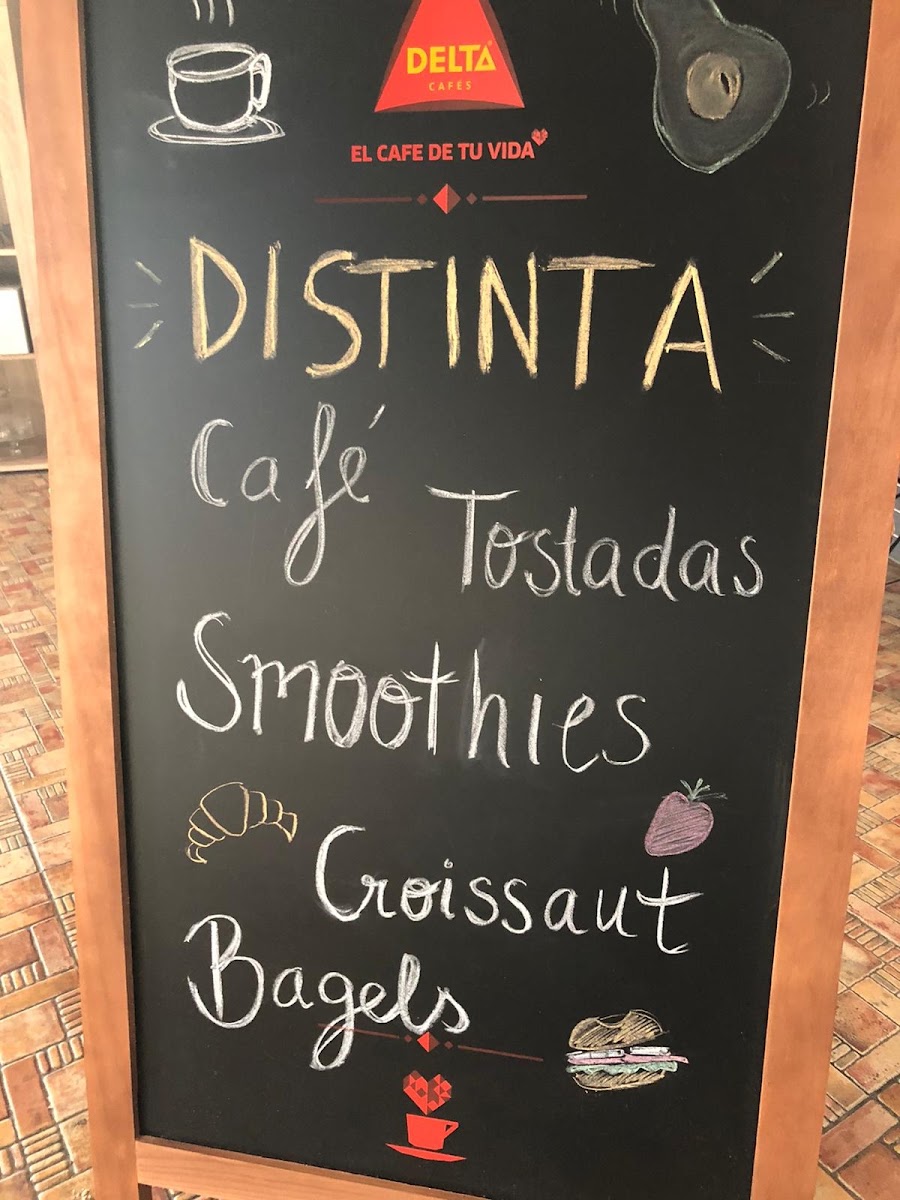 DELTA
CAFÉS
EL CAFE DE TU VIDA
DISTINTA
Café
Tostadas
Smoothies
Croissaut
Bagels